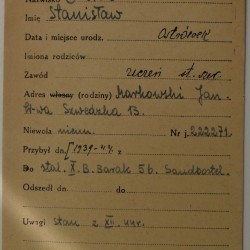 Nazwisko
Imię Stanisław
Data i miejsce urodz. Ostrówek
Imiona rodziców
Zawód uczeń st.
Adres własny (rodziny) Markowski Jan
W-wa Szwedzka 13.
Niewola niem. Nr j. 222271
Przybył dn. 1939-44
Do stal. X.B. Barak 56. Sandbostel.
Odszedł dn. do
Uwagi Stan z XII. 44r.